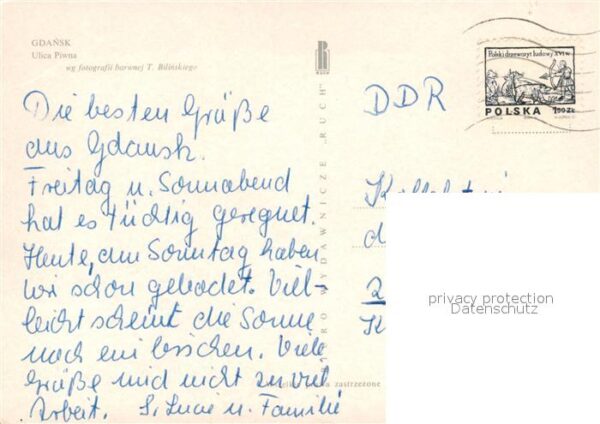 GDAŃSK
Ulica Piwna
wg fotografii barwnej T. Bilińskiego
RUCH
BIURO WYDAWNICZE „RUCH"
Polski drzeworyt ludowy XVI w.
POLSKA 1,50 ZŁ
DDR
Die besten Grüße
aus Gdansk.
Freitag u. Sonnabend
hat es tüchtig geregnet.
Heute, am Sonntag haben
wir schon gebadet. Viel-
leicht scheint die Sonne
noch ein bisschen. Viele
Grüße und nicht zu viel
Arbeit. S. Lucie u. Familie
d
2
K
zastrzeżone
privacy protection
Datenschutz